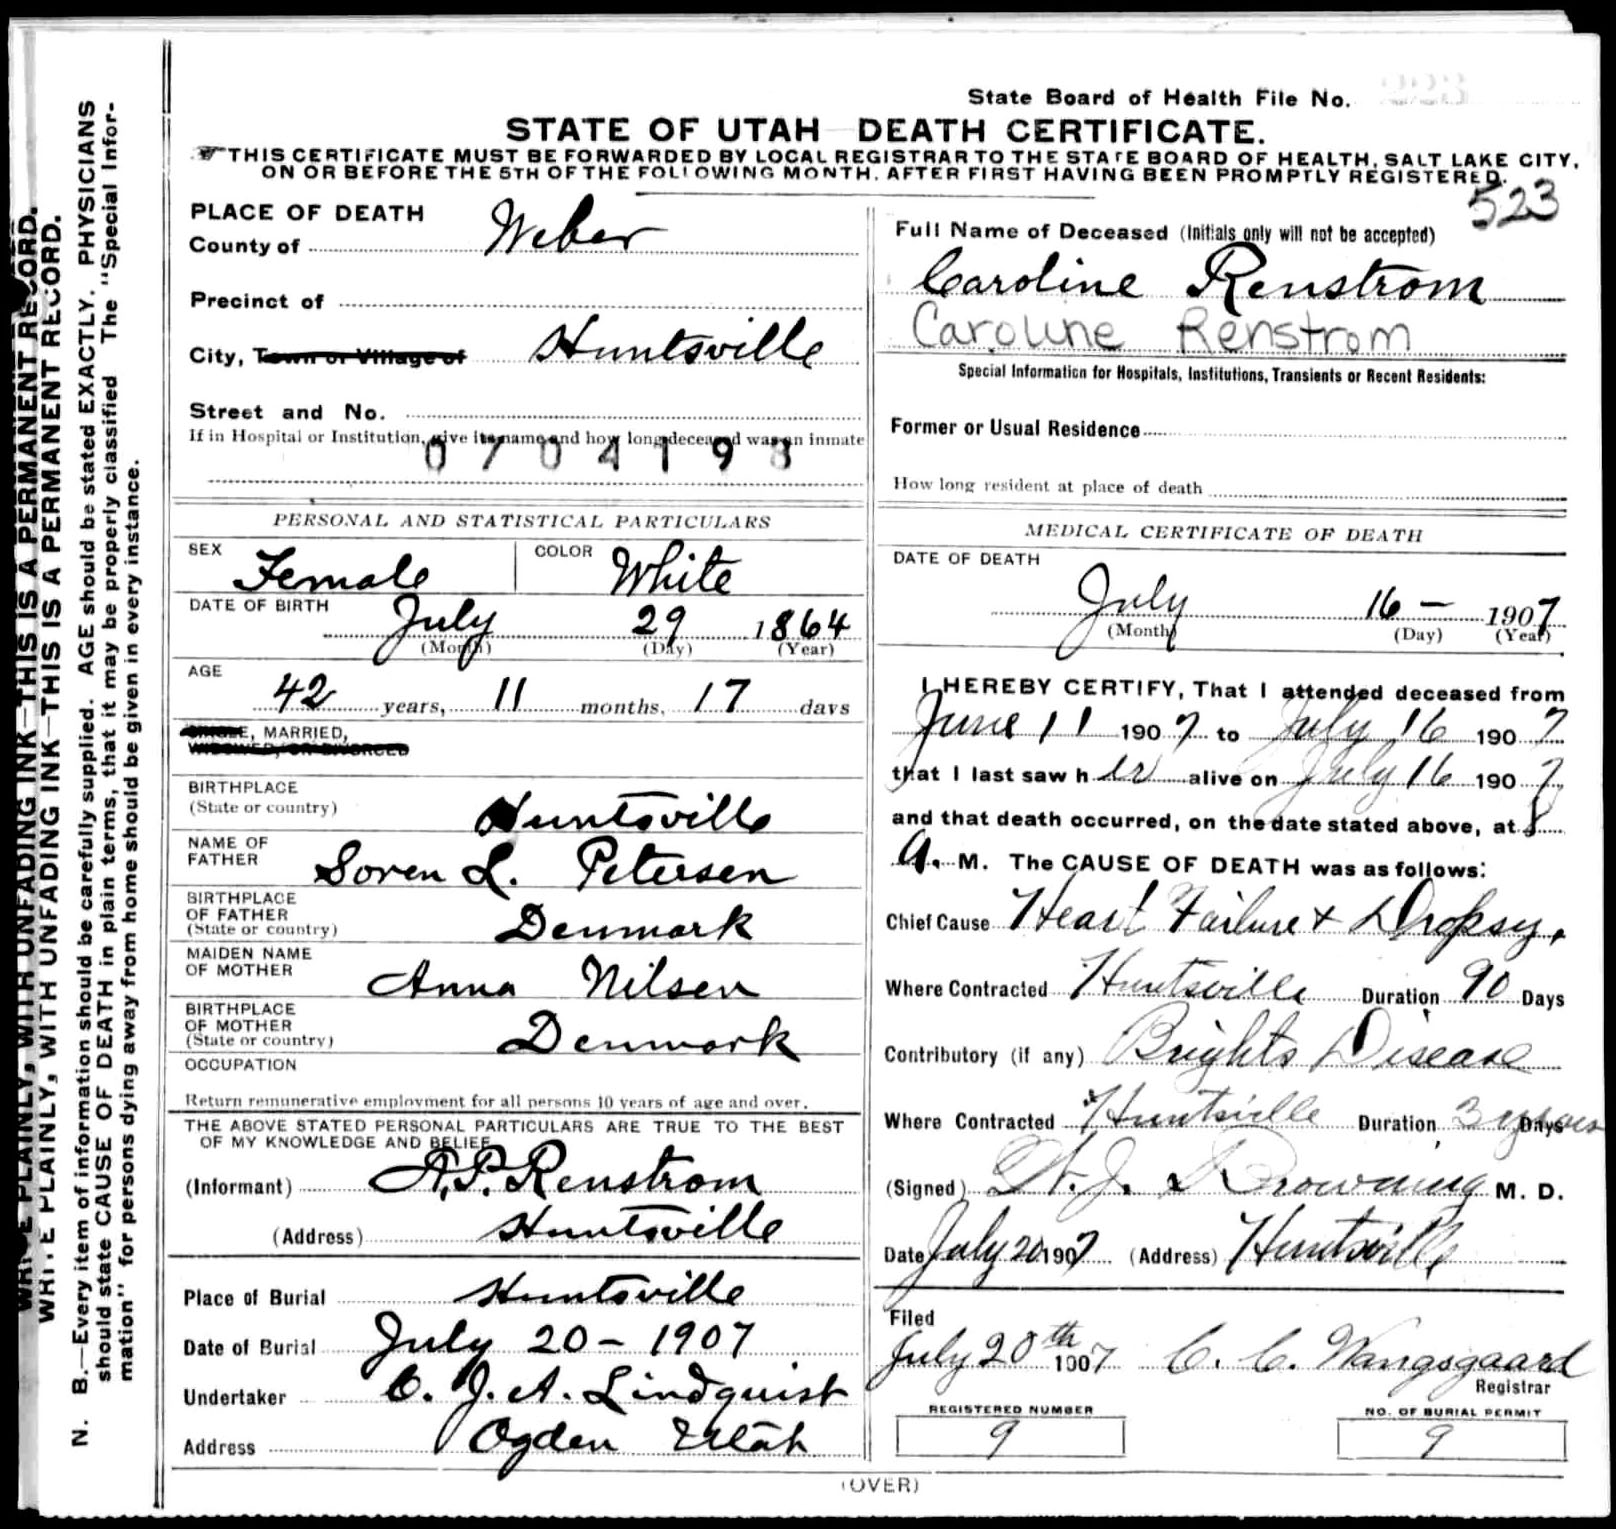 State Board of Health File No.
STATE OF UTAH DEATH CERTIFICATE.
THIS CERTIFICATE MUST BE FORWARDED BY LOCAL REGISTRAR TO THE STATE BOARD OF HEALTH, SALT LAKE CITY,
ON OR BEFORE THE 5TH OF THE FOLLOWING MONTH, AFTER FIRST HAVING BEEN PROMPTLY REGISTERED.
523
WRITE PLAINLY, WITH UNFADING INK—THIS IS A PERMANENT RECORD.
WRITE PLAINLY, WITH UNFADING INK—THIS IS A PERMANENT RECORD.
N. B.—Every item of information should be carefully supplied. AGE should be stated EXACTLY. PHYSICIANS
should state CAUSE OF DEATH in plain terms, that it may be properly classified The "Special Infor-
mation" for persons dying away from home should be given in every instance.
PLACE OF DEATH
County of Weber
Precinct of
City, Town or Village of Huntsville
Street and No.
If in Hospital or Institution, give its name and how long deceased was an inmate
0704193
PERSONAL AND STATISTICAL PARTICULARS
SEX Female COLOR White
DATE OF BIRTH
July 29 1864
(Month) (Day) (Year)
AGE
42 years, 11 months, 17 days
SINGLE, MARRIED,
WIDOWED, OR DIVORCED
BIRTHPLACE
(State or country) Huntsville
NAME OF
FATHER Soren L. Petersen
BIRTHPLACE
OF FATHER
(State or country) Denmark
MAIDEN NAME
OF MOTHER Anna Nilsen
BIRTHPLACE
OF MOTHER
(State or country) Denmark
OCCUPATION
Return remunerative employment for all persons 10 years of age and over.
THE ABOVE STATED PERSONAL PARTICULARS ARE TRUE TO THE BEST
OF MY KNOWLEDGE AND BELIEF
(Informant) A.P. Renstrom
(Address) Huntsville
Place of Burial Huntsville
Date of Burial July 20 - 1907
Undertaker C. J. A. Lindquist
Address Ogden Utah
Full Name of Deceased (Initials only will not be accepted)
Caroline Renstrom
Caroline Renstrom
Special Information for Hospitals, Institutions, Transients or Recent Residents:
Former or Usual Residence
How long resident at place of death
MEDICAL CERTIFICATE OF DEATH
DATE OF DEATH
July 16 — 1907
(Month) (Day) (Year)
I HEREBY CERTIFY, That I attended deceased from
June 11 1907 to July 16 1907
that I last saw her alive on July 16 1907
and that death occurred, on the date stated above, at 8
A. M. The CAUSE OF DEATH was as follows:
Chief Cause Heart Failure + Dropsy.
Where Contracted Huntsville Duration 90 Days
Contributory (if any) Brights Disease
Where Contracted Huntsville Duration 3 years Days
(Signed) W. J. Browning M. D.
Date July 20 1907 (Address) Huntsville
Filed
July 20th 1907 C. C. Wangsgaard
Registrar
REGISTERED NUMBER
9
NO. OF BURIAL PERMIT
9
(OVER)